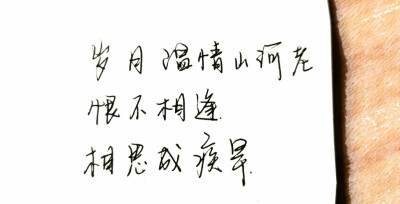 岁月温情山河老
恨不相逢
相思成疾早